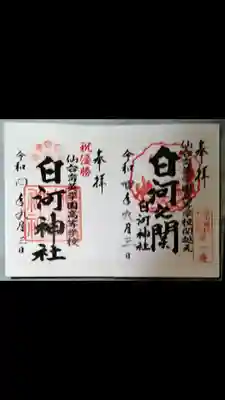 奉拝
白河之関
仙台育英学園高等学校関越え
白河神社
令和四年九月三日
奉拝
祝優勝
仙台育英学園高等学校
白河神社
令和四年九月三日